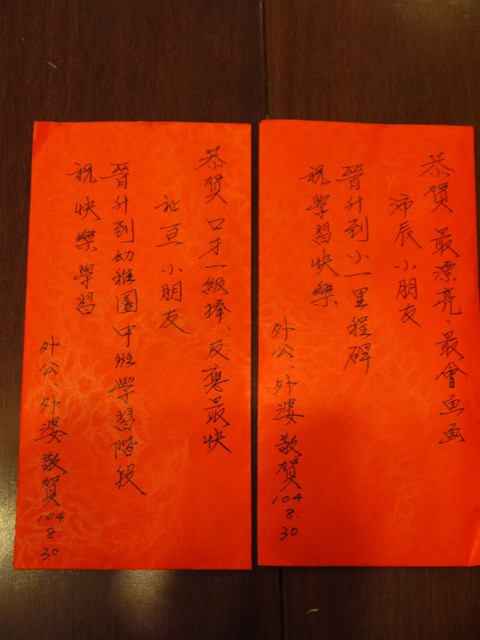 恭賀 最漂亮 最會畫画
沛辰小朋友
晉升到小一里程碑
祝學習快樂
外公、外婆 敬賀 104 8. 30
恭賀 口才一級棒、反應最快
小朋友
晉升到幼稚園中班學習階段
祝快樂學習
外公、外婆 敬賀 104 8. 30